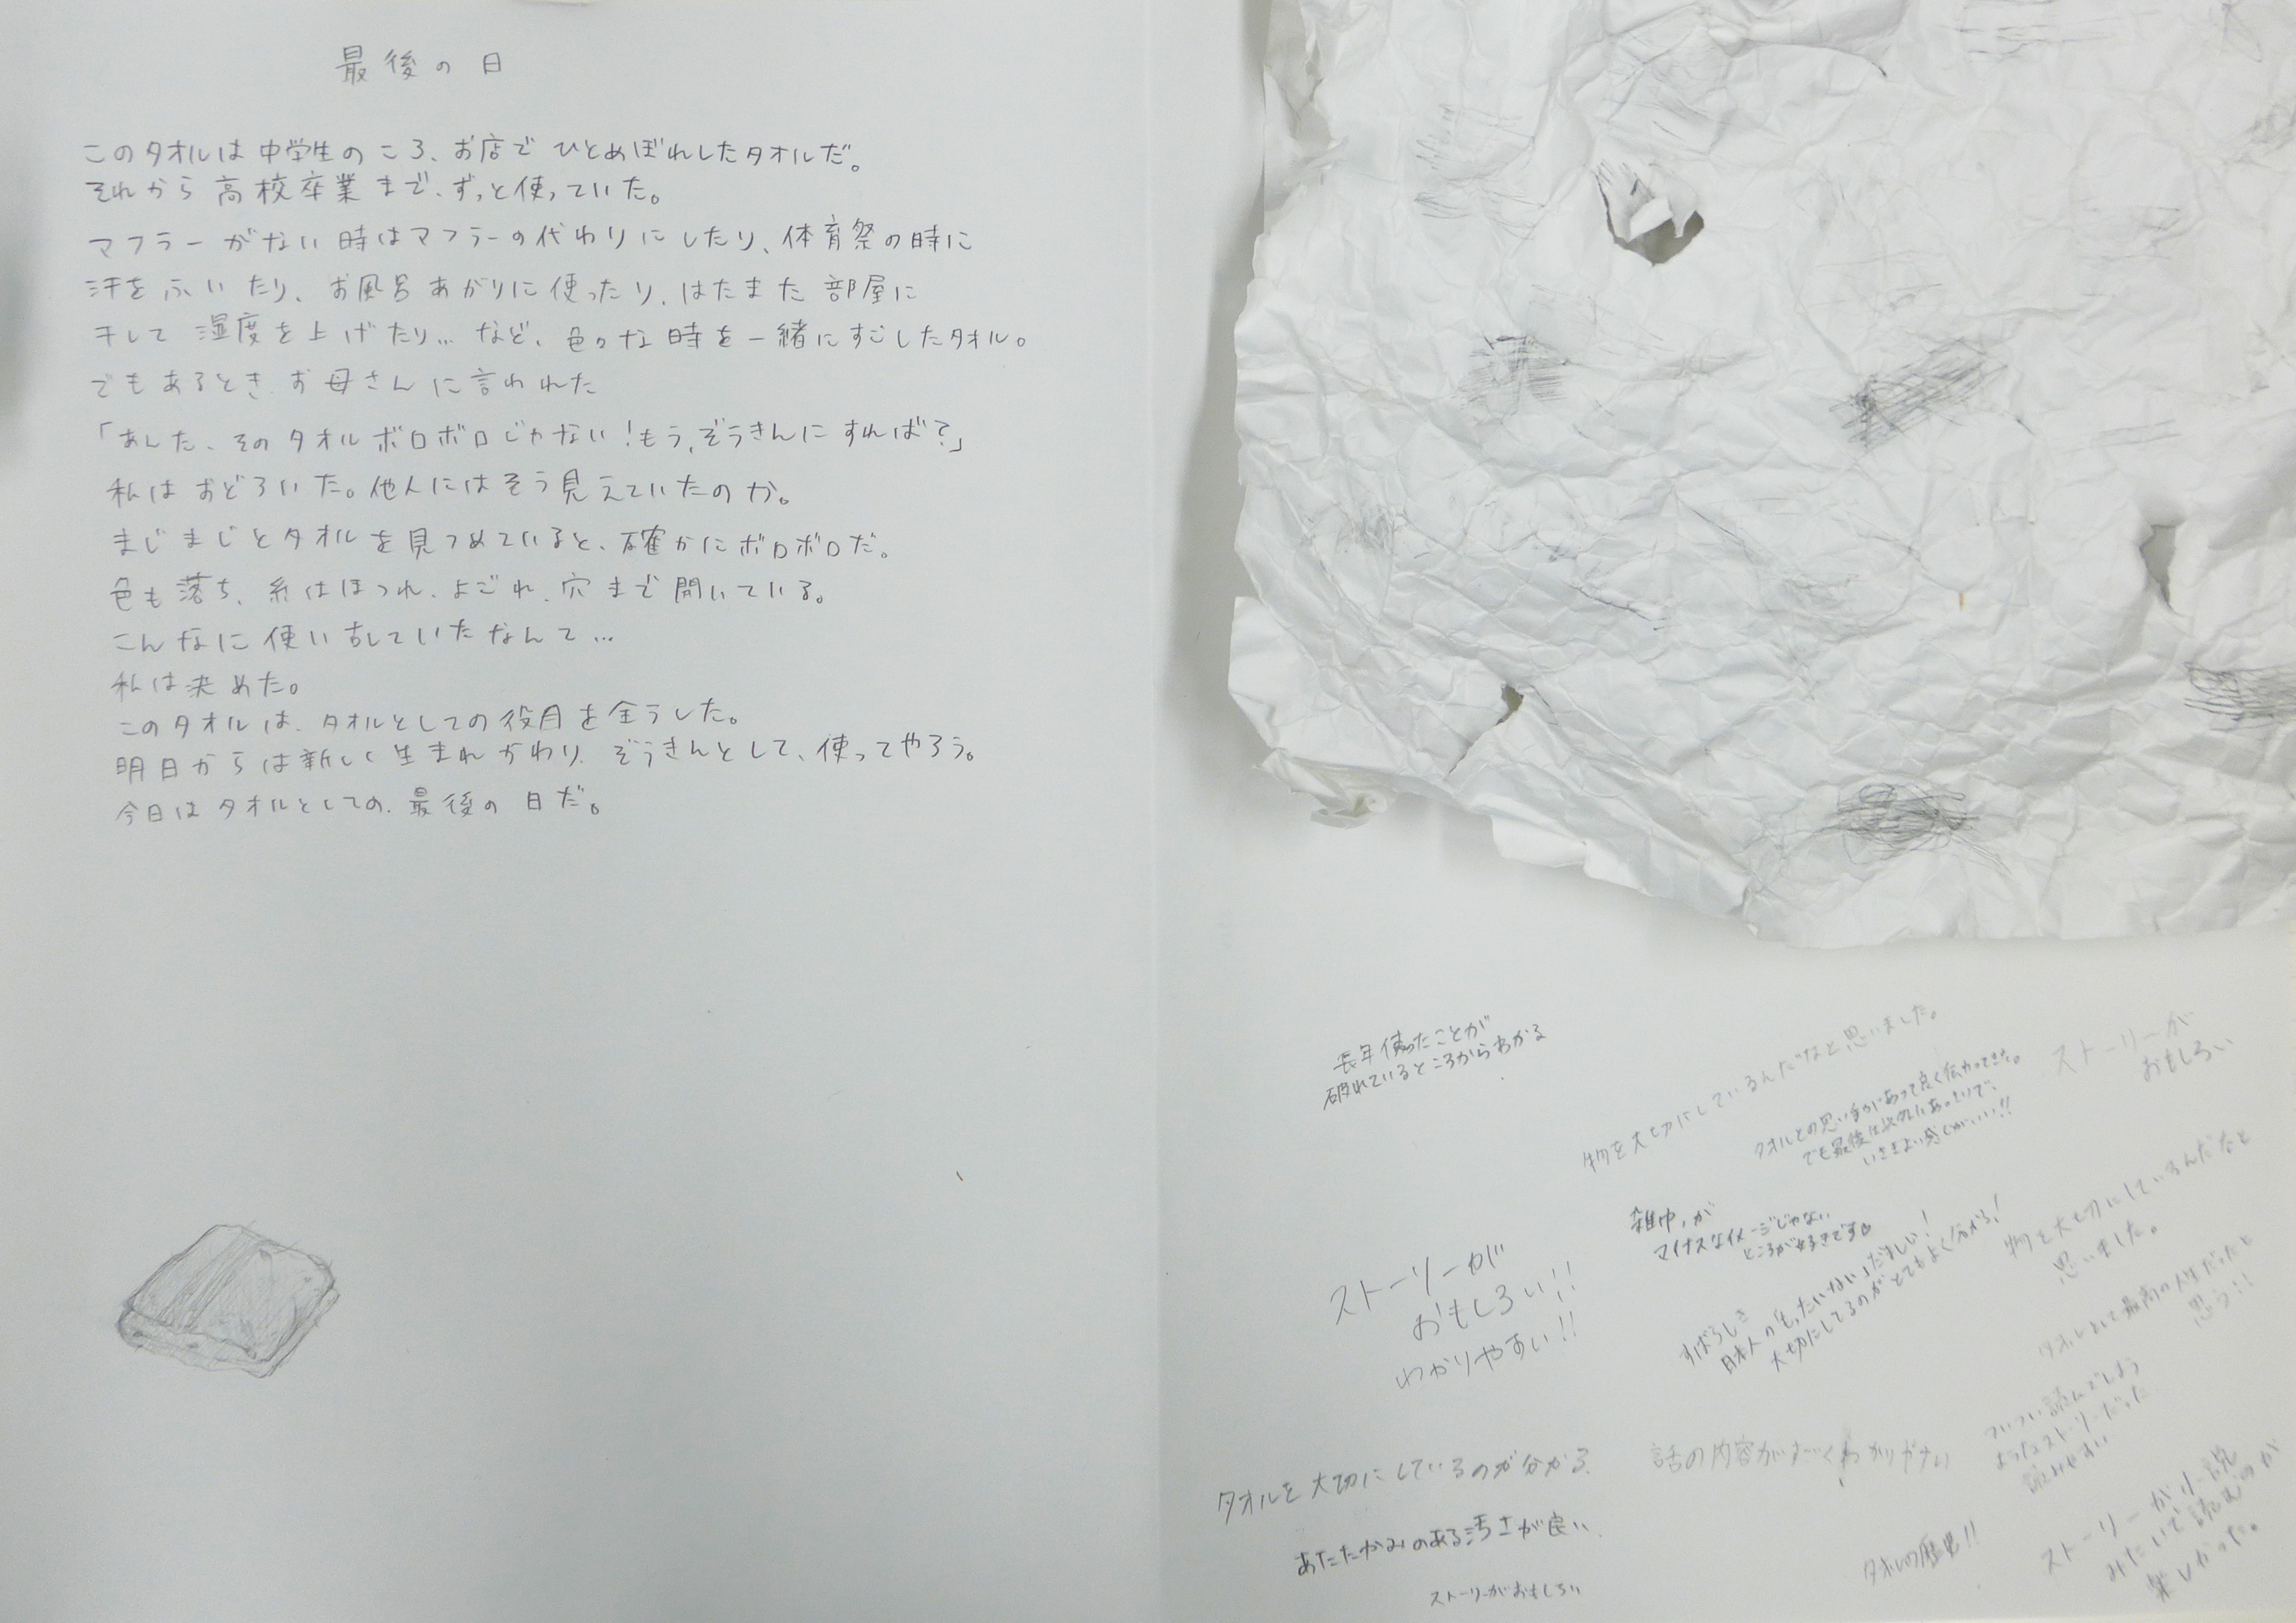 最後の日
このタオルは中学生のころ、お店でひとめぼれしたタオルだ。
それから高校卒業まで、ずっと使っていた。
マフラーがない時はマフラーの代わりにしたり、体育祭の時に
汗をふいたり、お風呂あがりに使ったり、はたまた部屋に
干して湿度を上げたり…など、色々な時を一緒にすごしたタオル。
でもあるとき、お母さんに言われた
「あんた、そのタオルボロボロじゃない!もう、ぞうきんにすれば?」
私はおどろいた。他人にはそう見えていたのか。
まじまじとタオルを見つめていると、確かにボロボロだ。
色も落ち、糸はほつれ、よごれ、穴まで開いている。
こんなに使い古していたなんて…
私は決めた。
このタオルは、タオルとしての役目を全うした。
明日からは新しく生まれかわり、ぞうきんとして、使ってやろう。
今日はタオルとしての、最後の日だ。
長年使ったことが
破れているところからわかる
物を大切にしているんだなと思いました。
タオルとの思い出があって良く伝わってきた。
でも最後は以外にあっさりで、
いさぎよい感じがいい!!
ストーリーが
おもしろい
雑巾、が
マイナスなイメージじゃない
ところが好きです
物を大切にしているんだなと
思いました。
ストーリーが
おもしろい!!
わかりやすい!!
すばらしき
日本人の「もったいない」だましい!
大切にしてるのがとてもよく分かる!
タオルとして最高の人生だったと
思う!!
ついつい読んでしまう
ようなストーリーだった
読みやすい
タオルを大切にしているのが分かる.
話の内容が
ストーリーが小説
みたいで読むのが
楽しかった。
あたたかみのある汚さが良い.
タオルの歴史!!
ストーリーがおもしろい